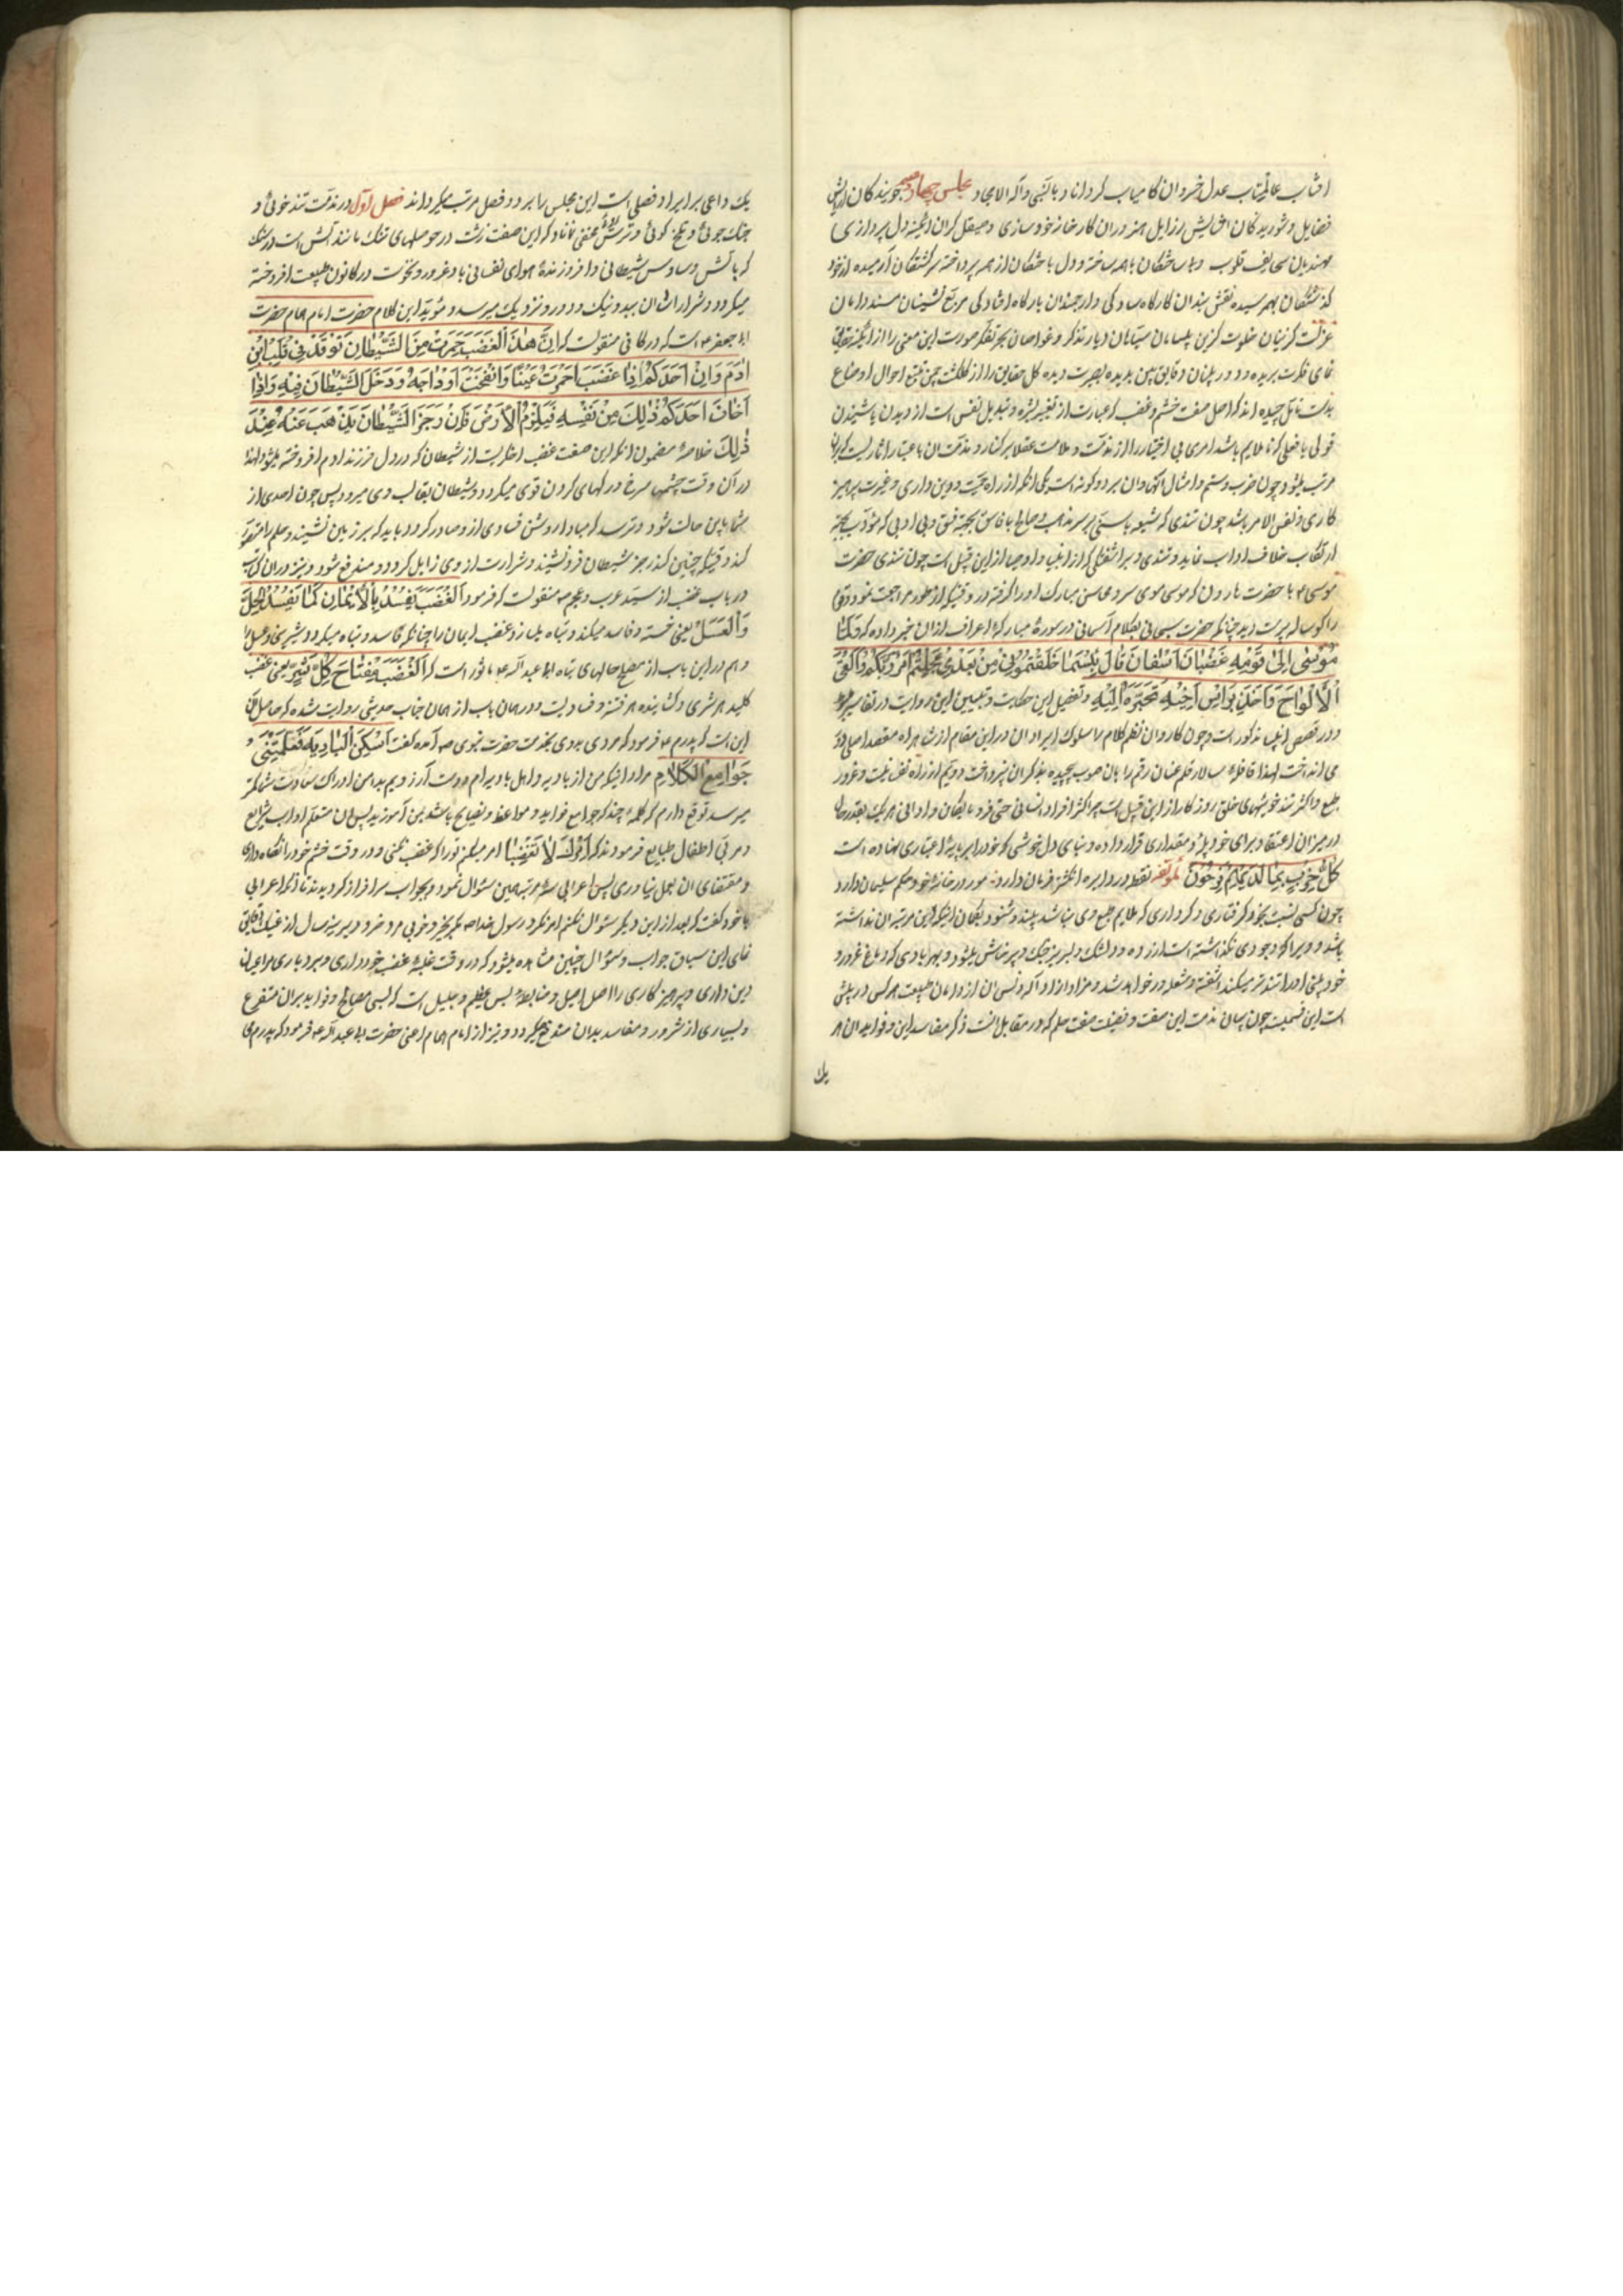 افتاب عالمتاب عدل خسروان کامیاب کرداناد بالنبی و آله الامجاد مجلس چهاردهم جویندکان ارایش
فضایل و شوریدکان افزایش رزایل هنروران کارخانه خودسازی و صیقل کران ائینه دل پردازی
صحایف قلوب و با همه ساخته و دل باختکان از همه پرداخته سرکشتکان آرمیده از خود
کذشتکان بهم رسیده نقش بندان کارکاه سادکی و ارجمندان بارکاه افتادکی مربع نشینان مسند دامان
عزلت کزینان خلوت کزین سیاحان دیار تذکر و غواصان بحر تفکر صورت این معنی را از ائینه
نمای فکرت بریده و دوربینان دقایق بین بدیده بصیرت دیده کل حقایق را از کلکشت چمن تتبع احوال اوضاع
بدست تامل چیده اند که اصل صفت خشم و غضب که عبارت از تغییر بشره و تبدیل نفس است از دیدن یا شنیدن
قولی یا فعلی که ناملایم باشد امری بی اختیار را از مذمت و ملامت عقلا برکنار و مذمت ان باعتبار اثاریست که بران
مرتب میشود چون ضرب و ستم و امثال انها و ان بر دو کونه است یکی انکه از راه حمیت و دین داری و غیرت پرهیز
کاری و نفس الامر باشد چون تندی که شیعه با سنی بر سر مذهب و صالح با فاسق بجهة فسق و بی ادبی که مؤدب بجهة
ارتکاب خلاف اداب نماید و تندی و براشفتکی که از انبیا و اوصیا از این قبیل است چون تندی حضرت
موسی ع با حضرت هارون که موسی موی سر و محاسن مبارک او را کرفته در وقتیکه از طور مراجعت نمود و قوم
را کوساله پرست دید چنانکه حضرت سبحانی بکلام آسمانی در سورهٔ مبارکه اعراف از ان خبر داده که فَلَمّا
مُوسٰی اِلٰی قَوْمِهِ غَضْبٰانَ اَسِفٰاً قٰالَ بِئْسَمٰا خَلَفْتُمُونی مِنْ بَعْدی اَعَجِلْتُمْ اَمْرَ رَبِّکُمْ وَاَلْقَی
الْاَلْوٰاحَ وَاَخَذَ بِرَاْسِ اَخیهِ یَجُرُّهُ اِلَیْهِ و تفصیل این حکایت و تبیین این روایت در تفاسیر
و در قصص انبیا مذکور است و چون کاروان نظم کلام را سلوک ایراد ان در این مقام از شاهراه مقصد اصلی دور
می انداخت لهذا قافله سالار قلم عنان رقم را بان صوب نپیچیده بذکر ان نپرداخت دویم از راه نفسانیت و غرور
طبع و اکثر تندخوییهای خلق روزکار از این قبیل است چرا که اکثر افراد انسانی حتی فرومایکان و ادانی هر یک بقدر حال
در میزان اعتقاد برای خود پله و مقداری قرار داده و بنای دل خوشی که خود را بر پایهٔ اعتباری نهاده است
کُلُّ حِزْبٍ بِمٰا لَدَیْهِمْ فَرِحُونَ لمؤلفه نقطه در دایره انکشتر فرمان دارد مور در خانهٔ خود حکم سلیمان دارد
چون کسی نسبت بخود کرفتاری و کرداری که ملایم طبع وی نباشد بیند و شنود بکمان اینکه این مرتبه ان نداشته
باشد و ویرا وجودی نکذاشته است ازرده و دلتنک و لبریز جنک و پرخاش میشود و بهر بادی که دماغ غرور و
خودبینی او را تندتر میکند اشفته و شعله ور خواهد شد
است این قسمیت چون بیان مذمت این صفت و فضیلت صفت حلم که در مقابل انست ذکر مفاسد این و فواید ان هر
یک
یک داعی بر ایراد فصلی است این مجلس را بر دو فصل مرتب میکرداند فصل اول در مذمت تندخوئی و
جنک جوئی و تلخ کوئی و ترش روئی مخفی نماناد که این صفت زشت در حوصلهای تنک مانند آتش است در سنک
که باتش وساوس شیطانی و افروزندهٔ هوای نفسانی باد غرور و نخوت در کانون طبیعت افروخته
میکردد و شرار اشان ببد و نیک و دور و نزدیک میرسد و مؤید این کلام حضرت امام همام حضرت
ابا جعفر ع است که در کافی منقولست که اِنَّ هٰذَا الْغَضَبَ جَمْرَةٌ مِنَ الشَّیْطٰانِ تُوْقَدُ فی قَلْبِ ابْنِ
اٰدَمَ وَاِنَّ اَحَدَکُمْ اِذٰا غَضَبَ احْمَرَّتْ عَیْنٰاهُ وَانْتَفَخَتْ اَوْدٰاجُهُ وَدَخَلَ الشَّیْطٰانُ فیهِ وَاِذٰا
خٰافَ اَحَدُکُمْ ذٰلِکَ مِنْ نَفْسِهِ فَلْیَلْزَمِ الْاَرْضَ فَاِنَّ رِجْزَ الشَّیْطٰانِ یَذْهَبُ عَنْهُ عِنْدَ
ذٰلِکَ خلاصهٔ مضمون انکه این صفت غضب اخکریست از شیطان که در دل فرزند ادم افروخته میشود لهذا
در آن وقت چشمها سرخ و رکهای کردن قوی میکردد و شیطان بقالب وی میرود پس چون احدی از
شما باین حالت شود و ترسد که مبادا روشن فسادی از و صادر کردد باید که بر زمین نشیند و حلم را متفق
کند وقتیکه چنین کند رجز شیطان فرونشیند و شرارت از وی زایل کردد و مندفع شود و نیز در ان کتاب
در باب غضب از سید عرب و عجم ص منقولست که فرمود اَلْغَضَبُ یُفْسِدُ الْاِیْمٰانَ کَمٰا یُفْسِدُ الْخَلُّ
الْعَسَلَ یعنی خسته و فاسد میکند و تباه میسازد غضب ایمان را چنانکه فاسد و تباه میکردد و شیرینی عسل از
و هم در این باب از مصلح حالهای تباه ابا عبد الله ع ماثور است که اَلْغَضَبُ مِفْتٰاحُ کُلِّ شَرٍّ یعنی غضب
کلید هر شری و کشاینده هر فتنه و فسادیست و در همان باب از همان جناب حدیثی روایت شده که حاصل آن
این است که پدرم ع فرمود که مردی بدوی بخدمت حضرت نبوی ص آمده کفت اَسْکُنُ الْبٰادِیَةَ فَعَلِّمْنی
جَوٰامِعَ الْکَلٰامِ مراد اینکه من از بادیه و اهل بادیه ام و دست آرزویم بدامن ادراک سعادت شما کمتر
میرسد توقع دارم که کلمهٔ چند که جوامع فواید و مواعظ و نصایح باشد بمن آموزید پس ان متعلم اداب شرایع
و مربی اطفال طبایع فرمودند که اٰمُرُکَ لاٰ تَغْضَبْ امر میکنم تو را که غضب نکنی و در وقت خشم خود را نکاه داری
و مقتضای ان بعمل نیاوری پس اعرابی سه مرتبه همین سئوال نمود و بجواب سرافراز کردید تا انکه اعرابی
با خود کفت که بعد از این دیکر سئوال نکنم امر نکرد رسول خدا ص مکر بخیر و خوبی
نمای این سیاق جواب و سئوال چنین مشاهده میشود که در وقت غلبهٔ غضب خودداری و بردباری مر ایمان
دین داری و پرهیزکاری را اصل اصیل و ضابطهٔ بس عظیم و جلیل است که بسی مصالح و فواید بر ان متفرع
و بسیاری از شرور و مفاسد بدان مندفع میکردد و نیز از امام همام اعنی حضرت ابا عبد الله ع فرمود که پدرم می